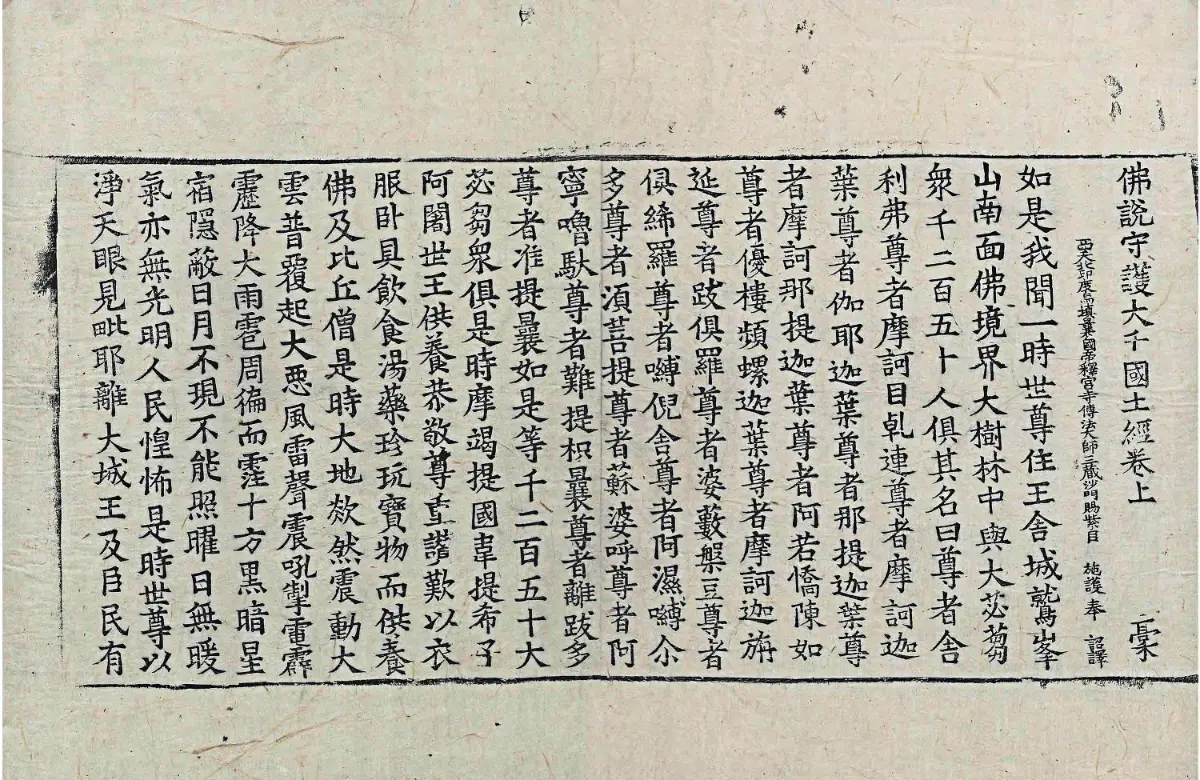 佛說守護大千國土經卷上 橐
西天北印度烏塡曩國帝釋宮寺傳法大師三藏沙門賜紫臣 施護 奉 詔譯
如是我聞一時世尊住王舍城鷲峯
山南面佛境界大樹林中與大苾芻
衆千二百五十人俱其名曰尊者舍
利弗尊者摩訶目乹連尊者摩訶迦
葉尊者伽耶迦葉尊者那提迦葉尊
者摩訶那提迦葉尊者阿若憍陳如
尊者優樓頻螺迦葉尊者摩訶迦旃
延尊者跋俱羅尊者婆藪槃豆尊者
俱絺羅尊者嚩倪舍尊者阿濕嚩尒
多尊者湏菩提尊者蘇婆呼尊者阿
寧嚕馱尊者難提枳曩尊者離跋多
尊者准提曩如是等千二百五十大
苾芻衆俱是時摩竭提國韋提希子
阿闍世王供養恭敬尊重讃歎以衣
服卧具飲食湯藥珍玩寶物而供養
佛及比丘僧是時大地欻然震動大
雲普覆起大惡風雷聲震吼掣電霹
靂降大雨雹周徧而霔十方黑暗星
宿隱蔽日月不現不能照曜日無暖
氣亦無光明人民惶怖是時世尊以
淨天眼見毗耶離大城王及臣民有